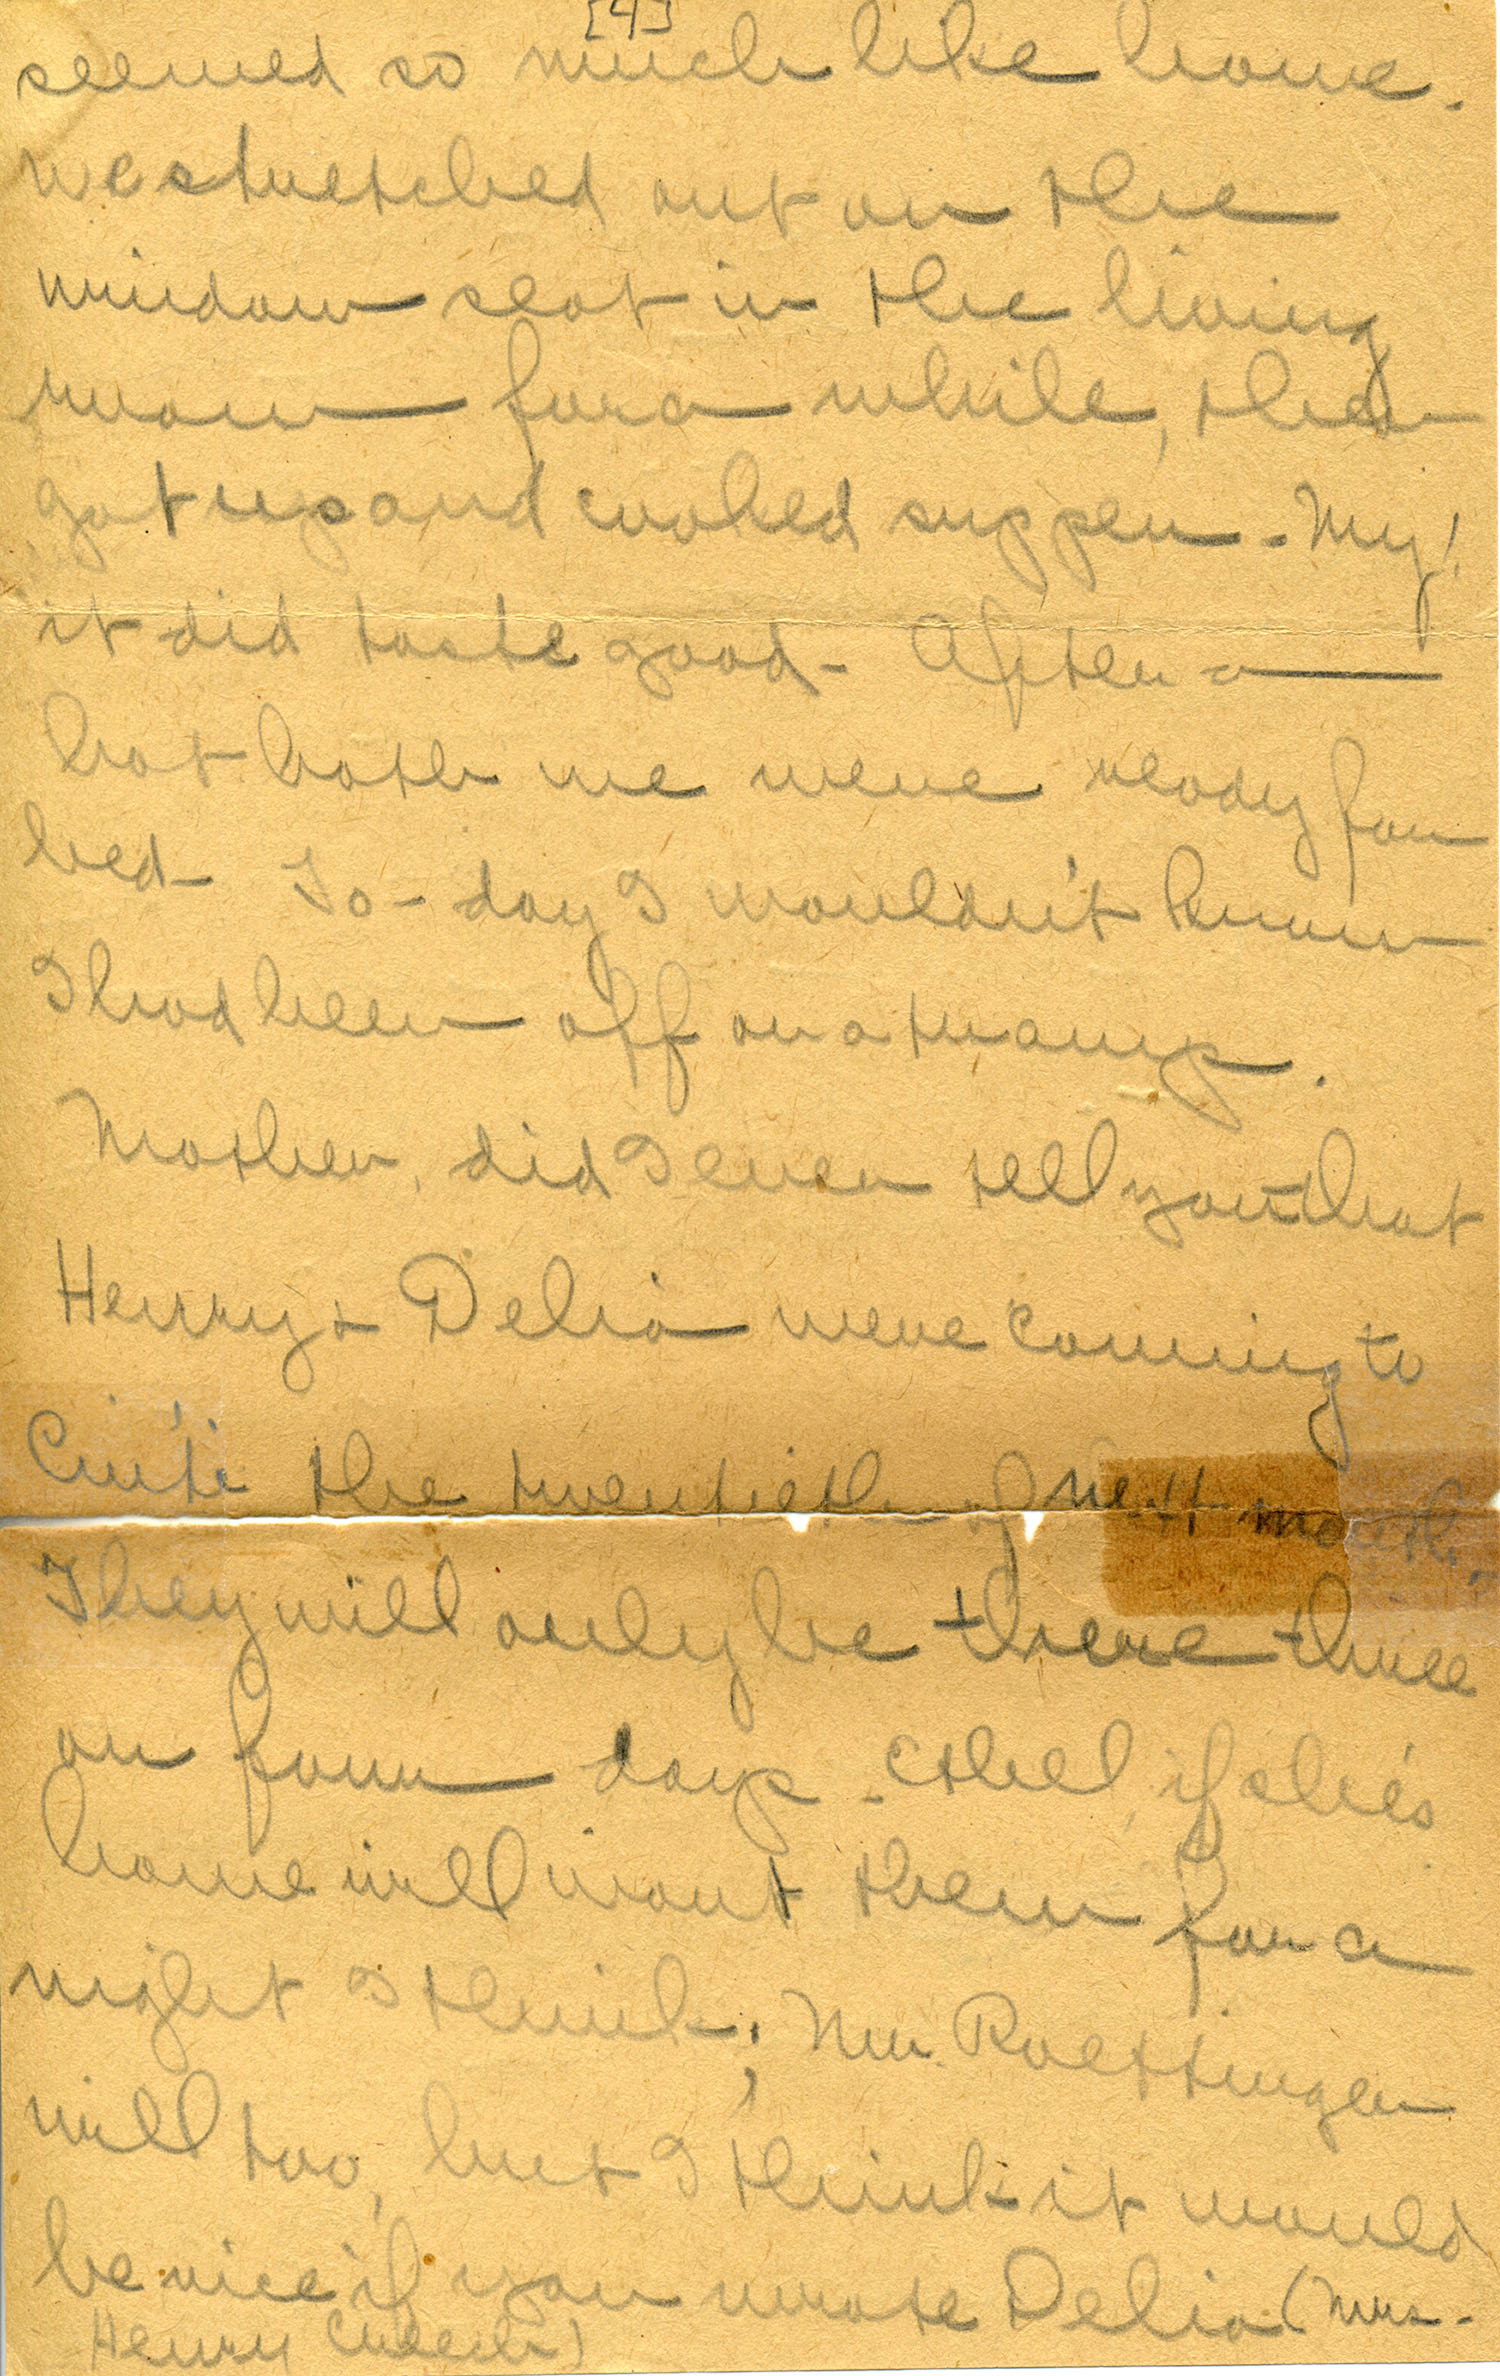 [4]
seemed so much like home.
We stretched out on the
window seat in the living
room for a while, then
got up and cooked supper - My!
it did taste good - After a
hot bath we were ready for
bed - To-day I wouldn't know
I had been off on a tramp.
Mother, did I ever tell you that
Henry & Delia were coming to
Cin'ti the twentieth of next month.
They will only be there three
or four days - Ethel, if she's
home will want them for a
night I think; Mrs. Roettinger
will too, but I think it would
be nice if you wrote Delia (Mrs.
Henry Creech)